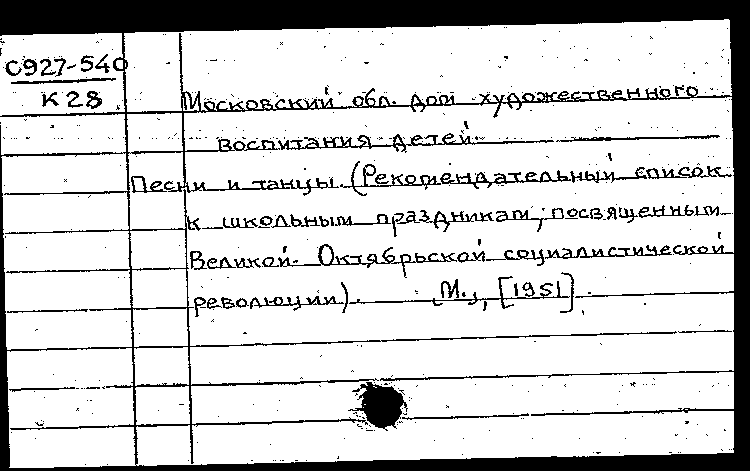 С927-540
К28
Московский обл. дом художественного
воспитания детей.
Песни и танцы. (Рекомендательный список
к школьным праздникам, посвященным
Великой Октябрьской социалистической
революции). М., [1951].